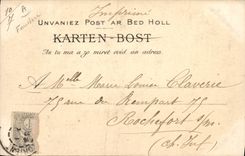 Imprimé
UNVANIEZ POST AR BED HOLL
KARTEN-BOST
An tu ma a zo miret evid an adress
A Mlle Marie Louise Claverie
75 rue du Rempart 75
Rochefort s/m
(Ch. Inf.)